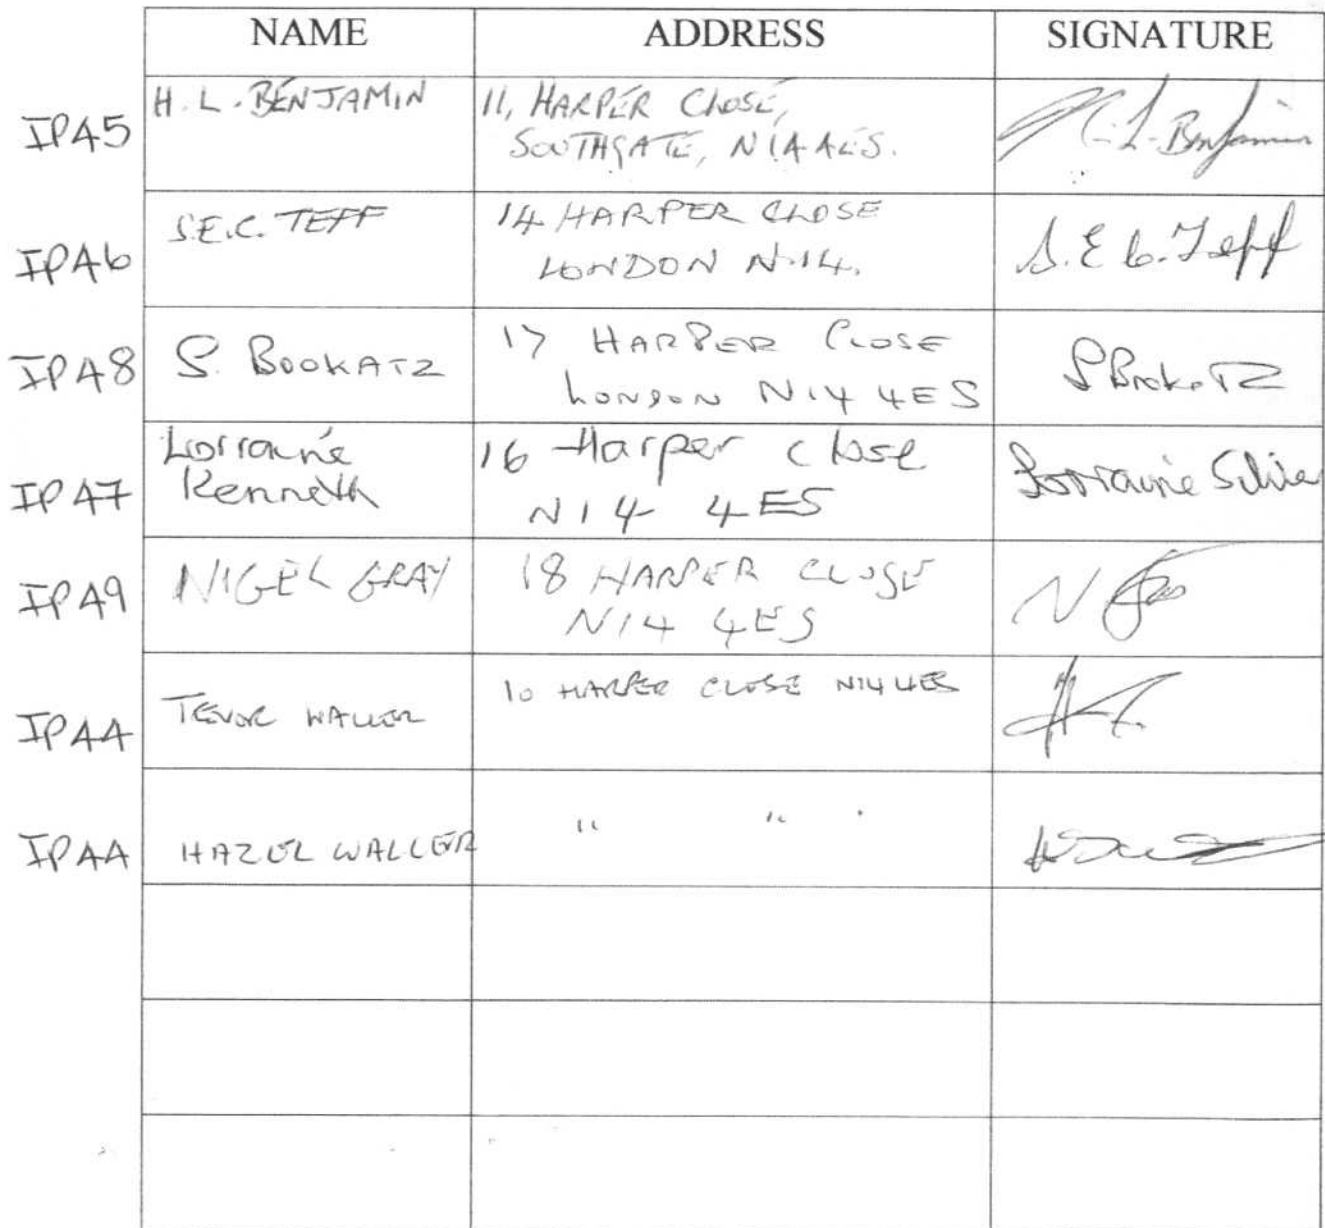 NAME ADDRESS SIGNATURE
IP45 H. L. BENJAMIN 11, HARPER CLOSE,
SOUTHGATE, N14 4ES.
H. L. Benjamin
IP46 S.E.C. TEFF 14 HARPER CLOSE
LONDON N.14.
S. E C. Teff
IP48 S. BOOKATZ 17 HARPER CLOSE
LONDON N14 4ES
IP47 Lorraine
Kenneth
16 Harper Close
N14 4ES
Lorraine
IP49 NIGEL GRAY 18 HARPER CLOSE
N14 4ES
IP44 TREVOR WALLER 10 HARPER CLOSE N14 4ES
IP44 HAZEL WALLER " "